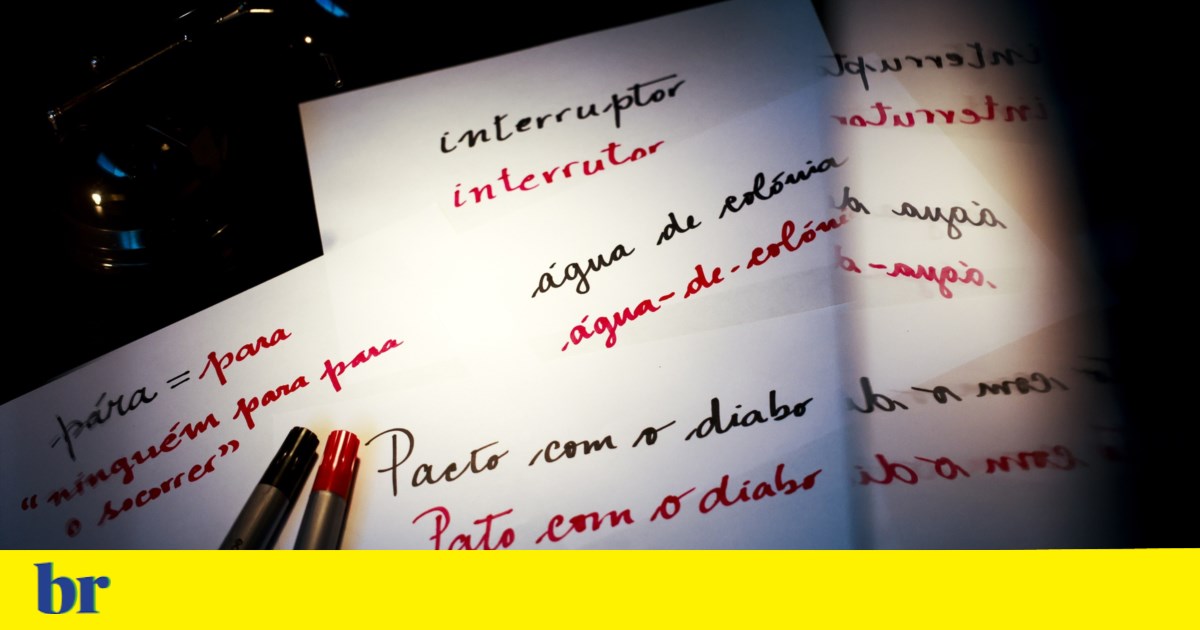 interruptor
interrutor
água de colónia
água-de-colóni
pára = para
"ninguém para para
o socorrer"
Pacto com o diabo
Pato com o diabo
br